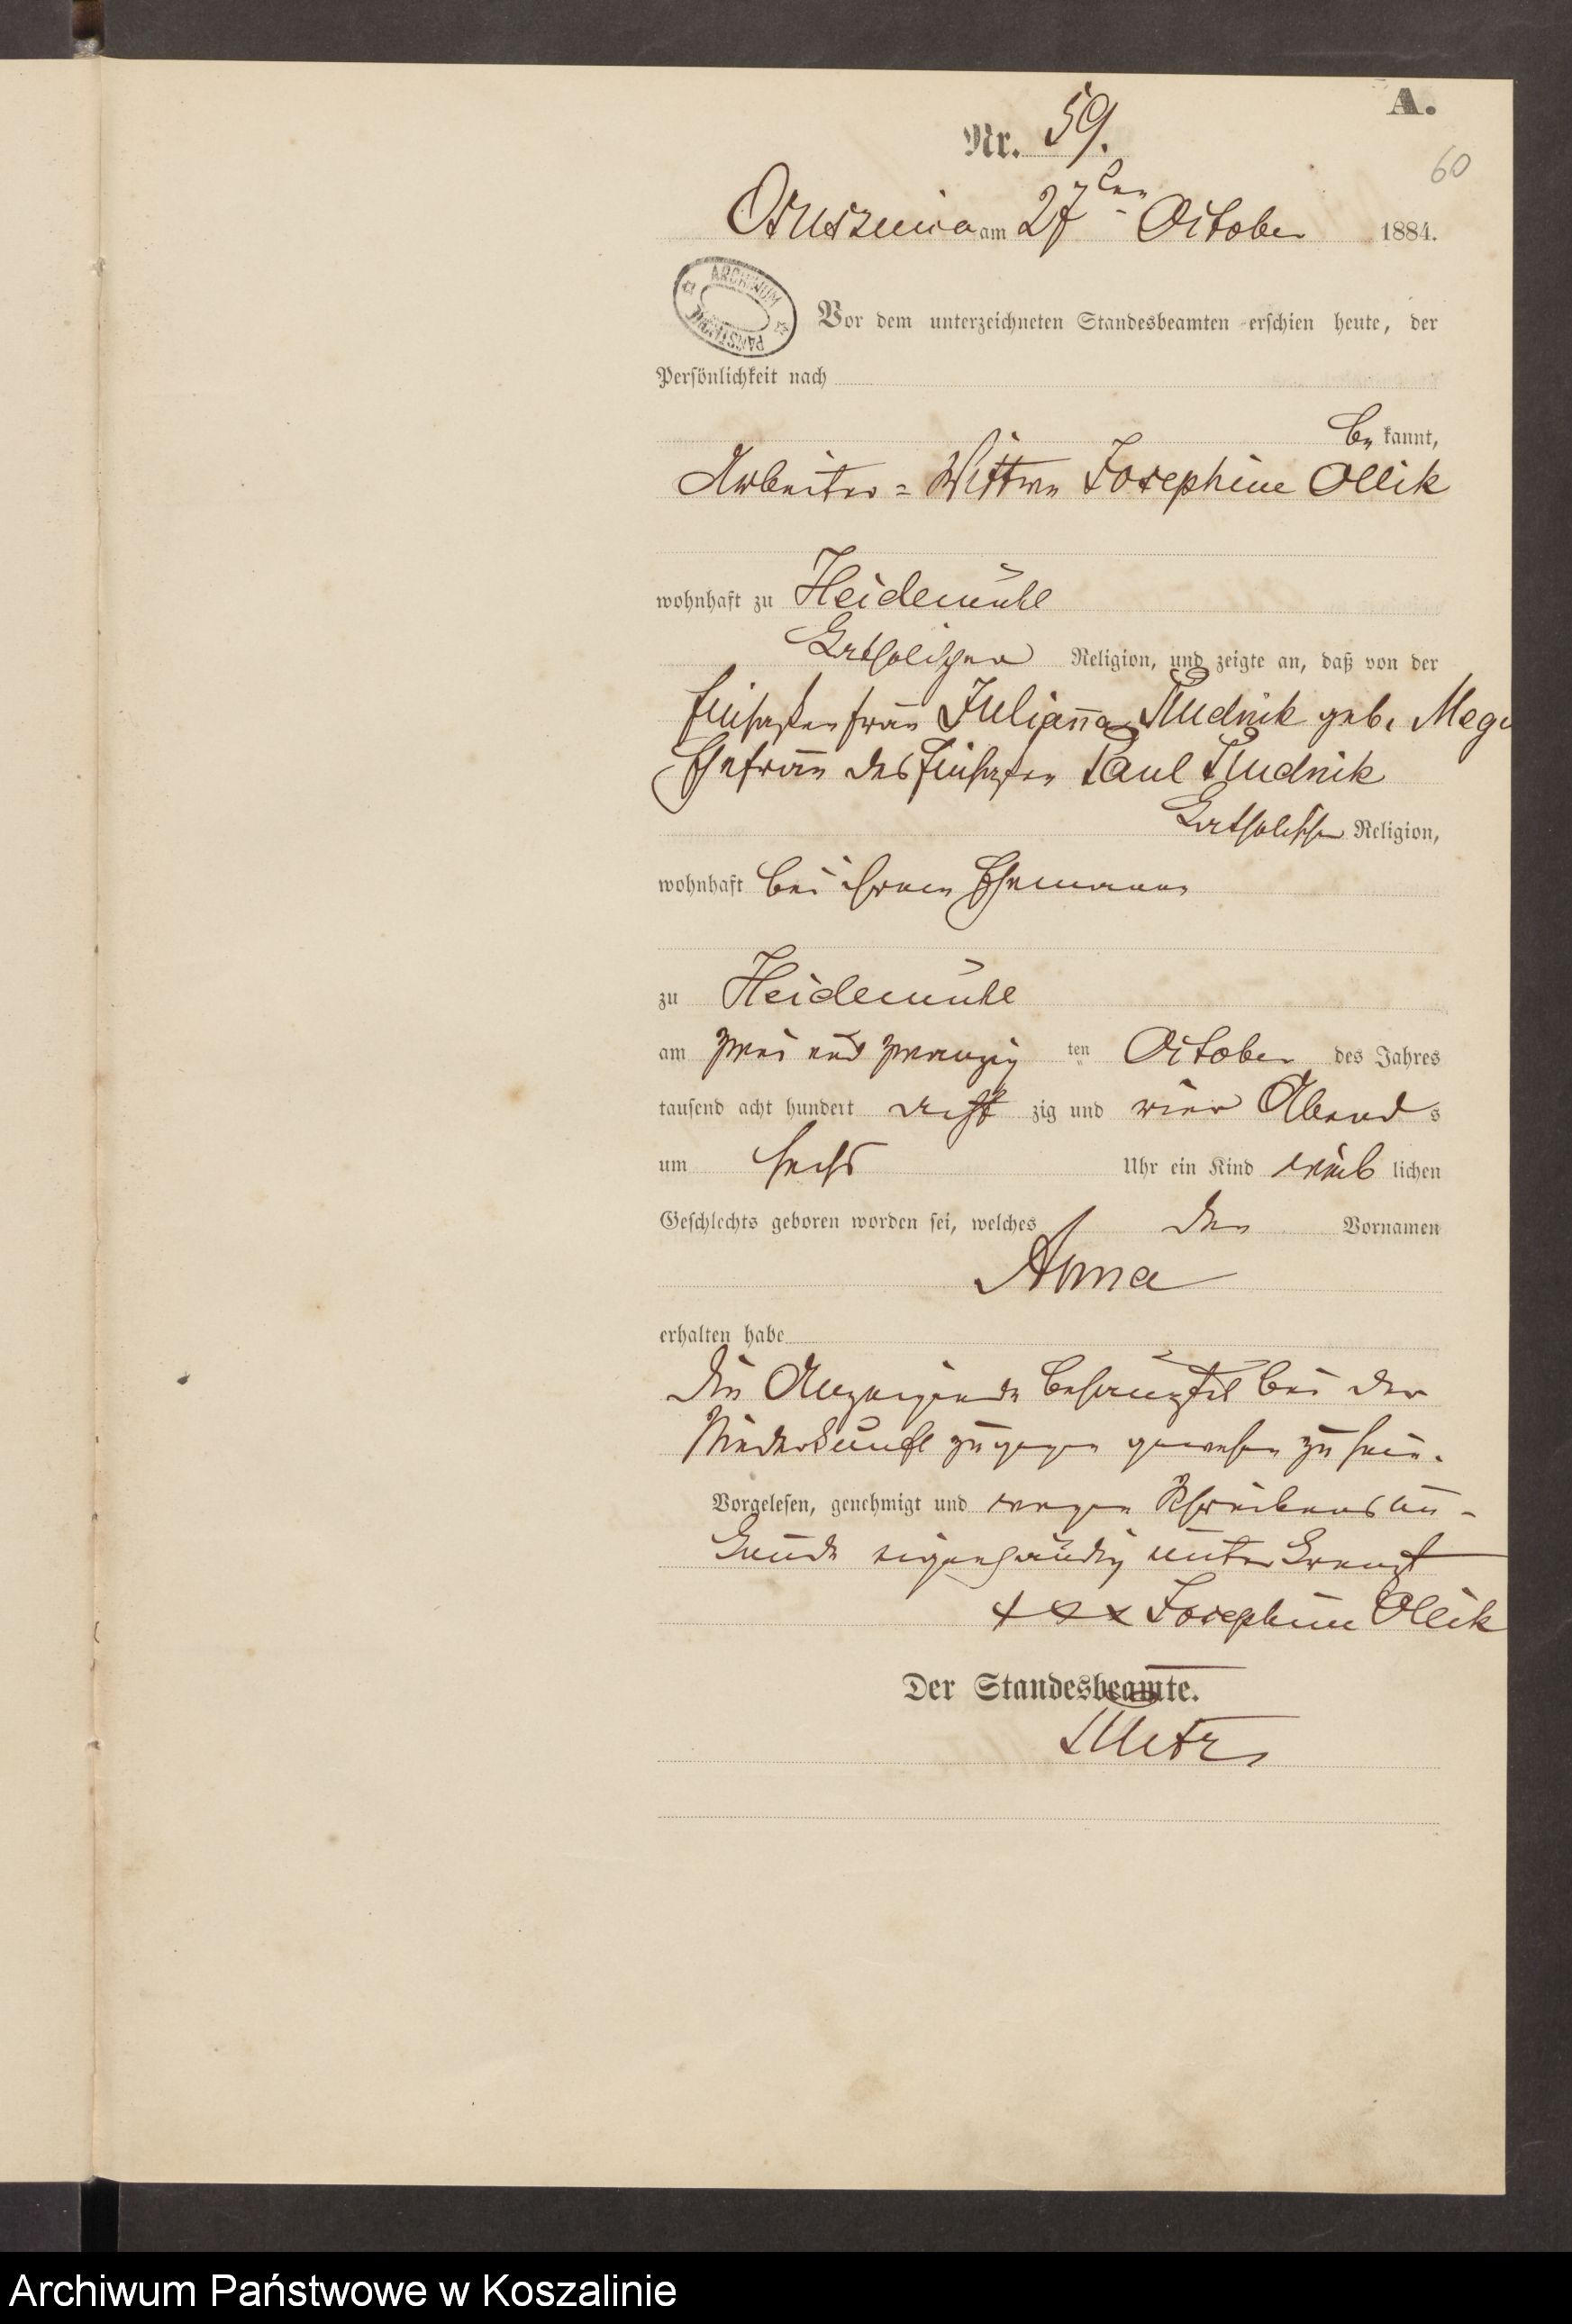 A.
Nr. 59.
60
Ossusznica am 27ten October 1884.
ARCHIWUM PAŃSTWOWE
Vor dem unterzeichneten Standesbeamten erschien heute, der
Persönlichkeit nach
be kannt,
Arbeiter = Wittwe Josephine Ollik
wohnhaft zu Heidemühl
katholischer Religion, und zeigte an, daß von der
Einsaßenfrau Julianna Rudnik geb.
Ehefrau des Einsaßen Paul Rudnik
katholischer Religion,
wohnhaft bei ihrem Ehemanne
zu Heidemühl
am zwei und zwanzig ten October des Jahres
tausend acht hundert acht zig und vier Abend s
um sechs Uhr ein Kind weib lichen
Geschlechts geboren worden sei, welches den Vornamen
Anna
erhalten habe
Die Anzeigende behauptet bei der
Niederkunft zugegen gewesen zu sein.
Vorgelesen, genehmigt und wegen Schreibensun-
kunde eigenhändig unterkreuzt
+ + x Josephine Ollik
Der Standesbeamte.
Archiwum Państwowe w Koszalinie